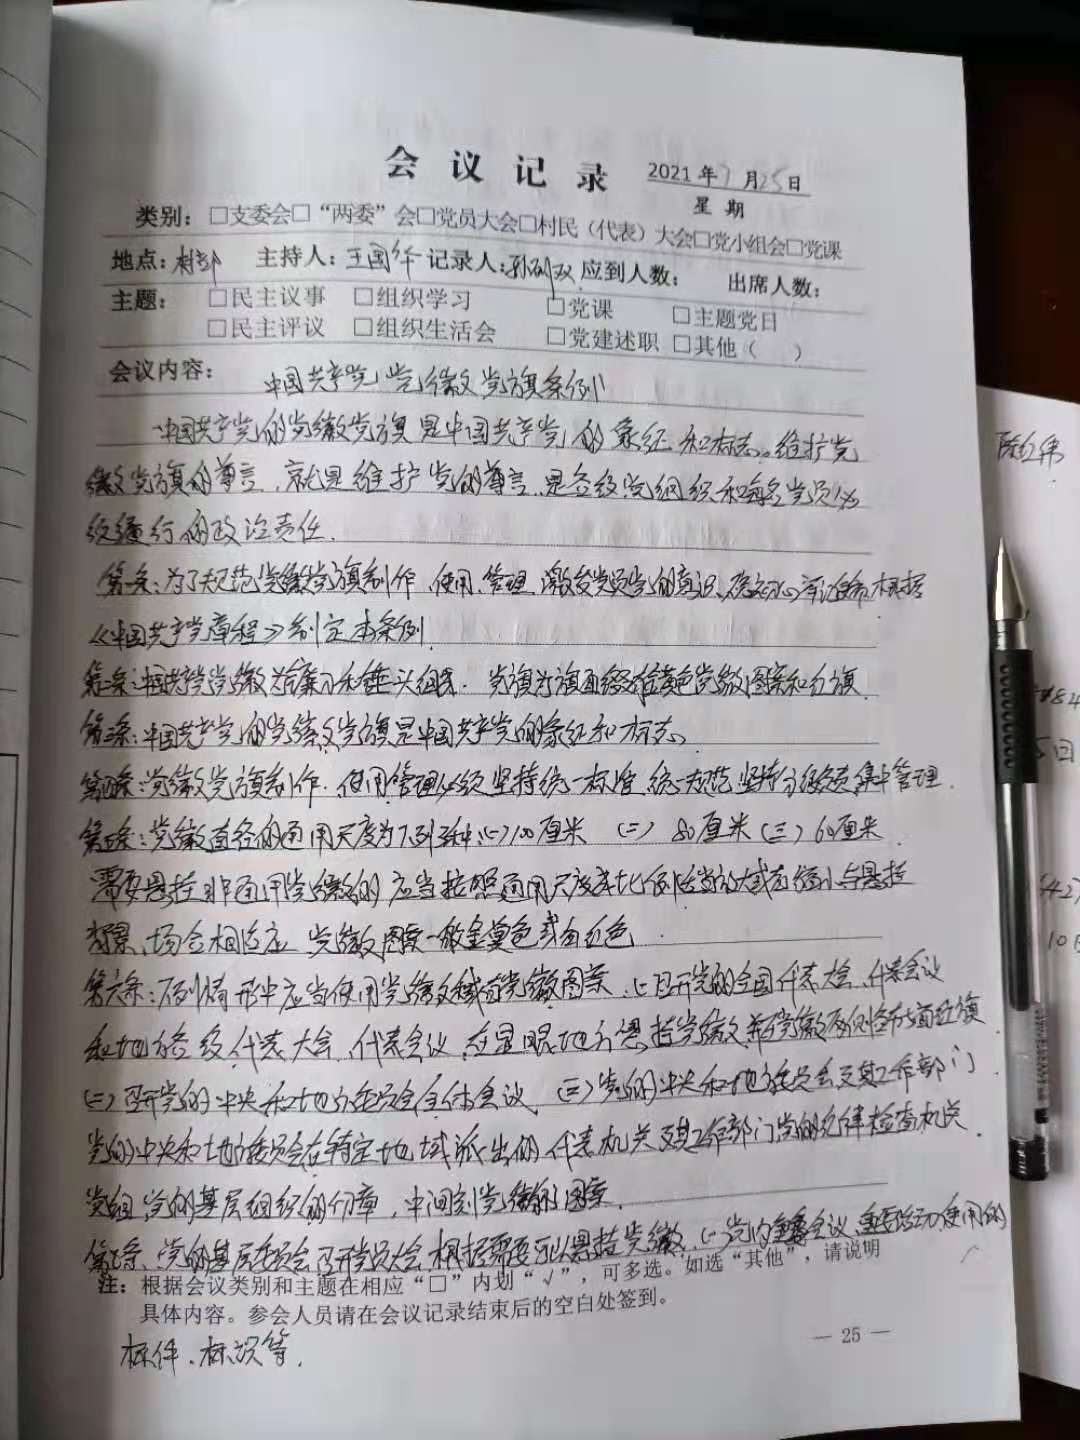 会议记录 2021年7月25日
星期
类别：□支委会□“两委”会□党员大会□村民（代表）大会□党小组会□党课
地点：村部 主持人：王国华 记录人： 应到人数： 出席人数：
主题： □民主议事 □组织学习 □党课 □主题党日
□民主评议 □组织生活会 □党建述职 □其他（ ）
会议内容： 中国共产党党徽党旗条例
中国共产党的党徽党旗是中国共产党的象征和标志。维护党
徽党旗的尊言，就是维护党的尊言，是各级党组织和每名党员必
须履行的政治责任.
第一条：为了规范党徽党旗制作、使用、管理、激发党员党的意识、 根据
《中国共产党章程》制定本条例
第二条：中国共产党党徽为镰刀和锤头组成. 党旗为旗面缀有黄色党徽图案和红旗
第三条：中国共产党的党徽党旗是中国共产党的象征和标志。
第四条：党徽党旗制作、使用管理必须坚持统一标准、统一规范坚持分级负责集中管理.
第五条：党徽直径的通用尺度为下列三种:(一)100厘米 (二) 80厘米 (三) 60厘米
需要悬挂非通用党徽的应当按照通用尺度成比例适当放大或者缩小与悬挂
背景、场合相适应 党徽图案一般金黄色或者红色.
第六条：下列情形中应当使用党徽或者党徽图案,(一)召开党的全国代表大会、代表会议
和地方各级代表大会、代表会议，在显眼地方悬挂党徽 党徽两侧 红旗
(二)召开党的中央和地方委员会全体会议 (三)党的中央和地方委员会及其工作部门
党的中央和地方委员会在特定地域派出的代表机关及其工作部门党的纪律检查机关
党组、党的基层组织的印章，中间刻党徽图案.
第七条、党的基层委员会召开党员大会根据需要可以悬挂党徽.(一)党内重要会议、重要活动使用的
注：根据会议类别和主题在相应“□”内划“√”，可多选。如选“其他”，请说明
具体内容。参会人员请在会议记录结束后的空白处签到。
标件、标识等.
— 25 —
84
5日
42
10